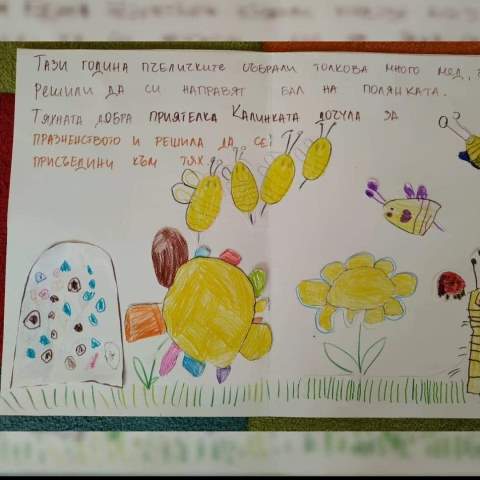 Тази година пчеличките събрали толкова много мед,
решили да си направят бал на полянката.
Тяхната добра приятелка Калинката дочула за
празненството и решила да се
присъедини към тях.